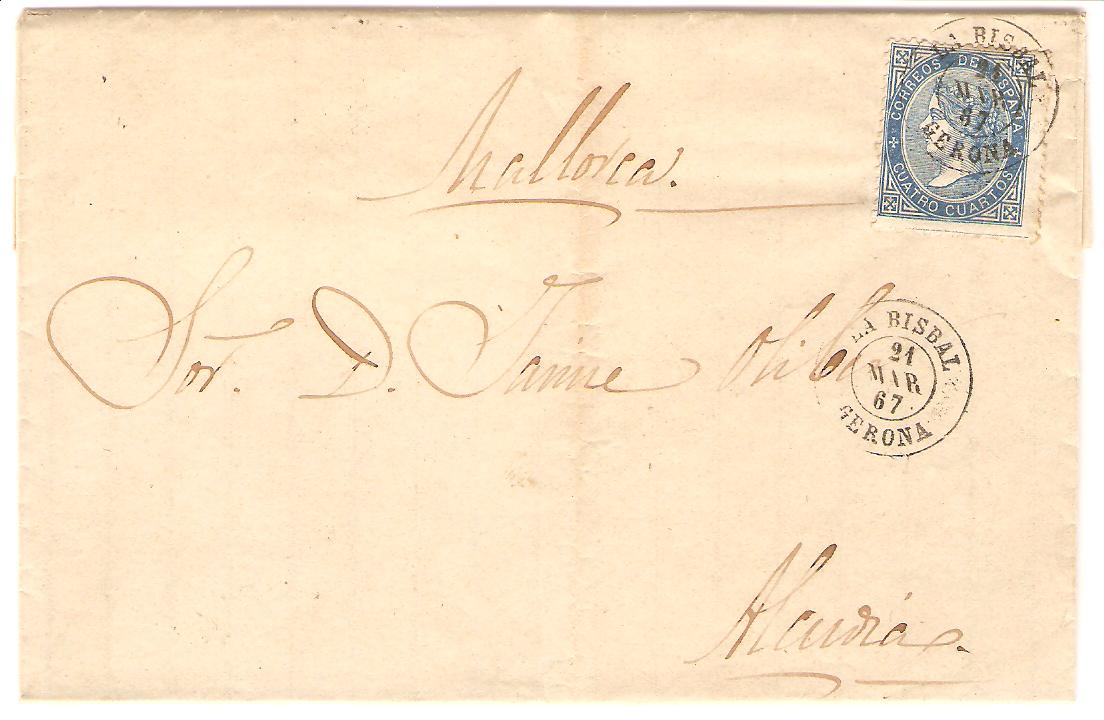 LA BISBAL
MAR
67
GERONA
CORREOS DE ESPAÑA
CUATRO CUARTOS
Mallorca.
Sor. D. Jaime
LA BISBAL
21
MAR
67
GERONA
Alcudia.